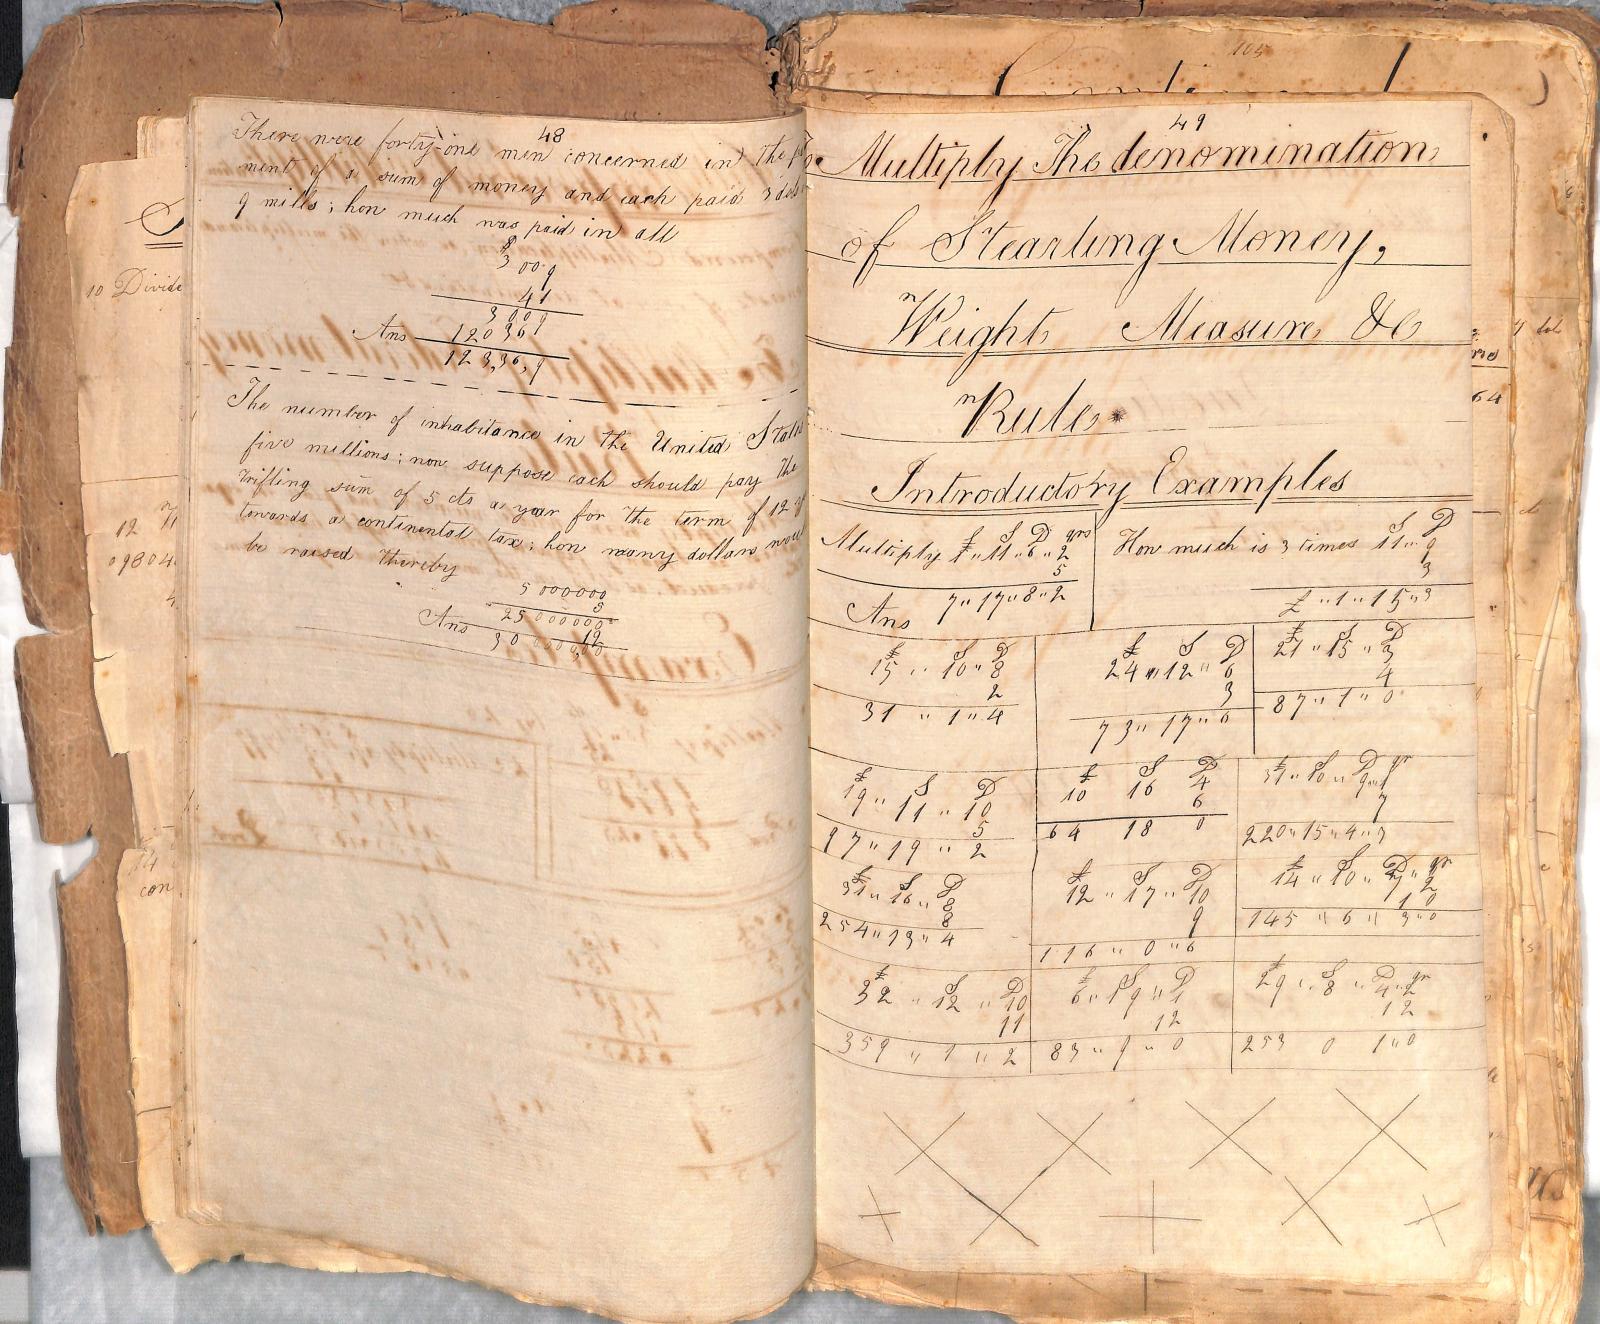 48
There were forty-one men concerned in the pay
ment of a sum of money and each paid 3 dols
9 mills; how much was paid in all
$
3 009
41
3 009
Ans 12036
123,36,9
The number of inhabitance in the United States
five millions; now suppose each should pay the
trifling sum of 5 cts a year for the term of 12 y
towards a continental tax; how many dollars would
be raised thereby
5 000000
5
25000000
12
Ans 30 0000,00
49
Multiply The denomination
of Stearling Money,
Weight Measure &c
Rule
Introductory Examples
£ S D qrs
Multiply 1 " 11 " 6 " 2
5
Ans 7 " 17 " 8 " 2
S D
How much is 3 times 11 " 9
3
£ " 1 " 15 " 3
£ S D
15 " 10 " 8
2
31 " 1 " 4
£ S D
24 " 12 " 6
3
73 " 17 " 6
£ S D
21 " 15 " 3
4
87 " 1 " 0
£ S D
19 " 11 " 10
5
97 " 19 " 2
£ S D
10 16 4
6
64 18 0
£ S D qr
31 " 10 " 9 " 1
7
220 " 15 " 4 " 3
£ S D
31 " 16 " 8
8
254 " 13 " 4
£ S D
12 " 17 " 10
9
116 " 0 " 6
£ S D qr
14 " 10 " 7 " 2
10
145 " 6 " 3 " 0
£ S D
32 " 12 " 10
11
359 " 1 " 2
£ S D
6 " 19 " 1
12
83 " 9 " 0
£ S D qr
29 " 8 " 4 " 2
12
253 0 1 " 0
105
10 Divide
12
09804
14
con
64